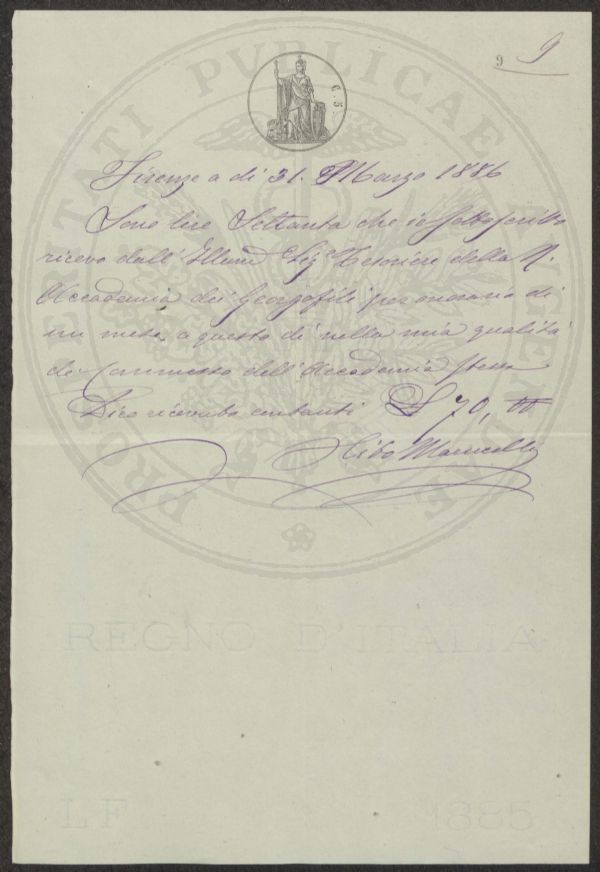 9 9
C. 5
PROSPERITATI PVBLICAE AVGENDAE
Firenze a dì 31. Marzo 1886
Sono lire Settanta che io sottoscritto
ricevo dall' Illmo Sig Tesoriere della R.
Accademia dei Georgofili per onorario di
un mese a questo dì nella mia qualità
di Commesso dell' Accademia stessa
Dico ricevuto contanti £ 70, 00
Marucelli
REGNO D'ITALIA
LF 1885